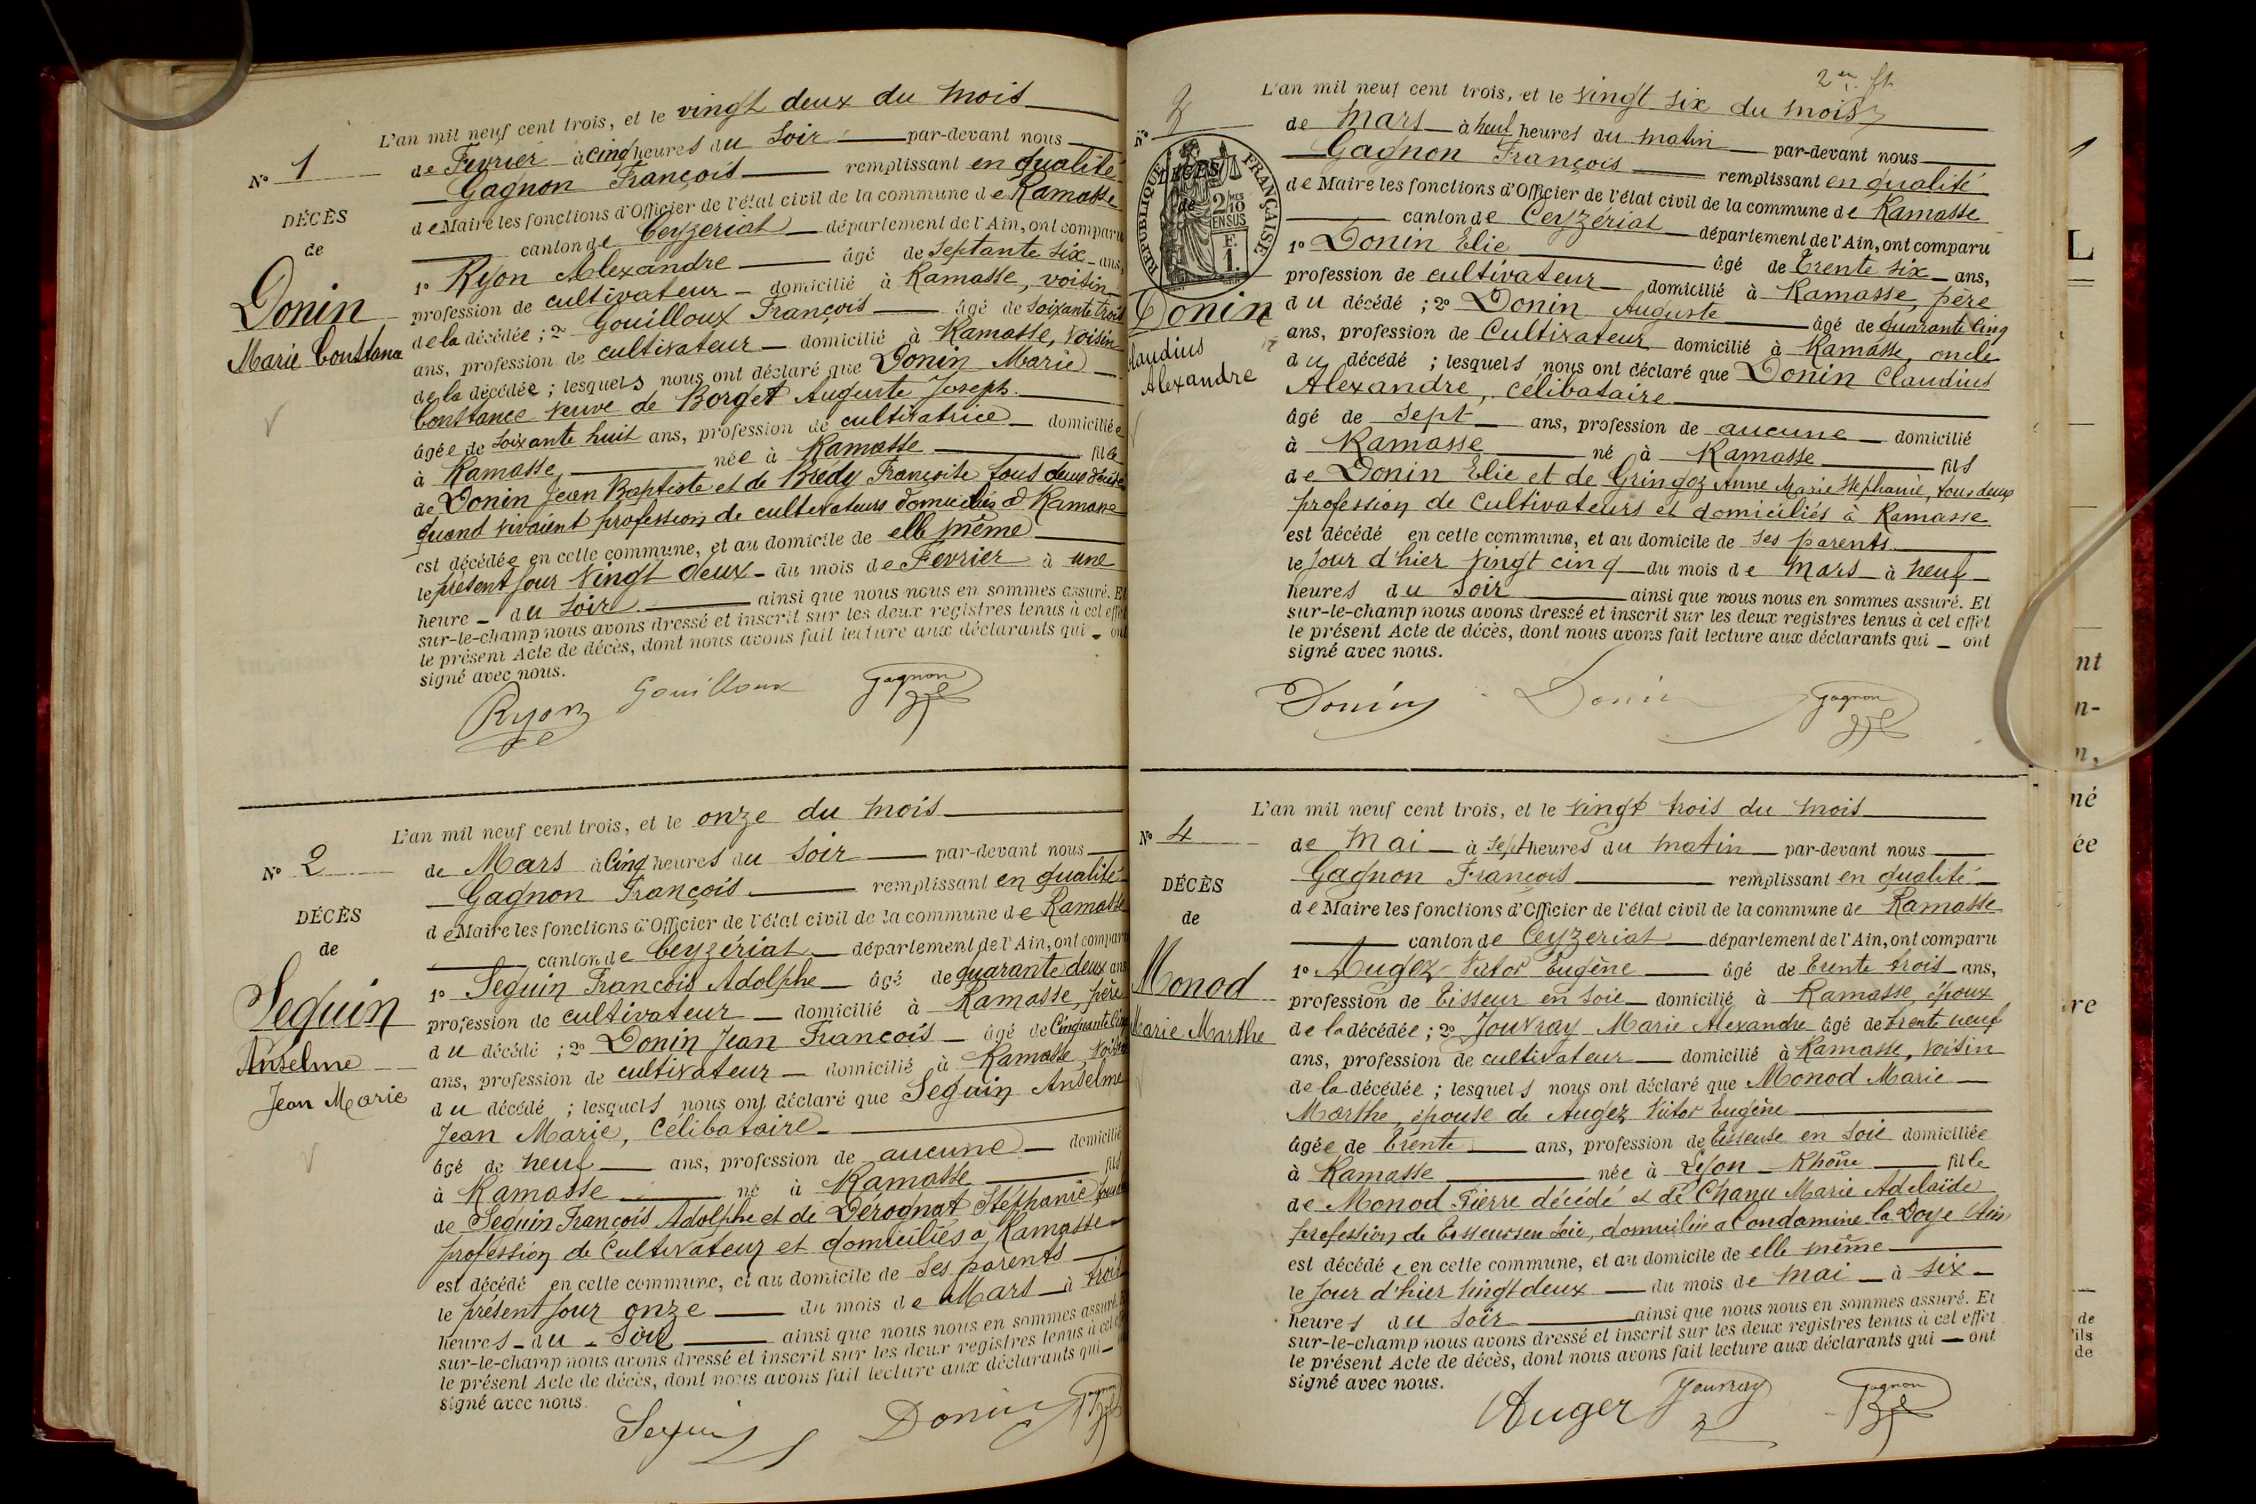 N° 1
DÉCÈS
de
Donin
Marie Constance
L'an mil neuf cent trois, et le vingt deux du mois
de Fevrier à cinq heures du soir par-devant nous
Gagnon François remplissant en qualité
de Maire les fonctions d'Officier de l'état civil de la commune de Ramasse
canton de Ceyzeriat département de l'Ain, ont comparu
1° Ryon Alexandre âgé de septante six ans,
profession de cultivateur domicilié à Ramasse, voisin
de la décédée ; 2° Gouilloux François âgé de soixante trois
ans, profession de cultivateur domicilié à Ramasse, voisin
de la décédée ; lesquels nous ont déclaré que Donin Marie
Constance veuve de Borget Auguste Joseph
âgée de soixante huit ans, profession de cultivatrice domiciliée
à Ramasse, née à Ramasse fille
de Donin Jean Baptiste et de Bredy Françoise tous deux
quand vivaient profession de cultivateurs domiciliés à Ramasse
est décédée en cette commune, et au domicile de elle même
le présent jour vingt deux du mois de Fevrier à une
heure du soir ainsi que nous nous en sommes assuré. Et
sur-le-champ nous avons dressé et inscrit sur les deux registres tenus à cet effet
le présent Acte de décès, dont nous avons fait lecture aux déclarants qui ont
signé avec nous.
Ryon Gouilloux Gagnon
N° 2
DÉCÈS
de
Seguin
Anselme
Jean Marie
L'an mil neuf cent trois, et le onze du mois
de Mars à cinq heures du soir par-devant nous
Gagnon François remplissant en qualité
de Maire les fonctions d'Officier de l'état civil de la commune de Ramasse
canton de Ceyzériat département de l'Ain, ont comparu
1° Seguin François Adolphe âgé de quarante deux ans
profession de cultivateur domicilié à Ramasse, père
du décédé ; 2° Donin Jean François âgé de Cinquante cinq
ans, profession de cultivateur domicilié à Ramasse voisin
du décédé ; lesquels nous ont déclaré que Seguin Anselme
Jean Marie, célibataire
âgé de neuf ans, profession de aucune domicilié
à Ramasse né à Ramasse fils
de Seguin François Adolphe et de Dérognat Stéphanie
profession de Cultivateur et domiciliés à Ramasse
est décédé en cette commune, et au domicile de ses parents
le présent jour onze du mois de Mars à trois
heures du soir ainsi que nous nous en sommes assuré. Et
sur-le-champ nous avons dressé et inscrit sur les deux registres tenus à cet
le présent Acte de décès, dont nous avons fait lecture aux déclarants qui
signé avec nous.
Seguin Donin Gagnon
N° 3
RÉPUBLIQUE FRANÇAISE
2/10 EN SUS
F. 1.
DÉCÈS
de
Donin
Claudius
Alexandre
L'an mil neuf cent trois, et le vingt six du mois
de Mars à neuf heures du matin par-devant nous
Gagnon François remplissant en qualité
de Maire les fonctions d'Officier de l'état civil de la commune de Ramasse
canton de Ceyzériat département de l'Ain, ont comparu
1° Donin Elie âgé de trente six ans,
profession de cultivateur domicilié à Ramasse, père
du décédé ; 2° Donin Auguste âgé de quarante cinq
ans, profession de Cultivateur domicilié à Ramasse, oncle
du décédé ; lesquels nous ont déclaré que Donin Claudius
Alexandre, célibataire
âgé de sept ans, profession de aucune domicilié
à Ramasse né à Ramasse fils
de Donin Elie et de Gringoz Anne Marie Stephanie, tous deux
profession de Cultivateurs et domiciliés à Ramasse
est décédé en cette commune, et au domicile de ses parents
le jour d'hier vingt cinq du mois de Mars à neuf
heures du soir ainsi que nous nous en sommes assuré. Et
sur-le-champ nous avons dressé et inscrit sur les deux registres tenus à cet effet
le présent Acte de décès, dont nous avons fait lecture aux déclarants qui ont
signé avec nous.
Donin Donin Gagnon
N° 4
DÉCÈS
de
Monod
Marie Marthe
L'an mil neuf cent trois, et le vingt trois du mois
de Mai à sept heures du matin par-devant nous
Gagnon François remplissant en qualité
de Maire les fonctions d'Officier de l'état civil de la commune de Ramasse
canton de Ceyzeriat département de l'Ain, ont comparu
1° Auger Victor Eugène âgé de trente trois ans,
profession de Tisseur en soie domicilié à Ramasse, époux
de la décédée ; 2° Jouvray Marie Alexandre âgé de trente neuf
ans, profession de cultivateur domicilié à Ramasse, voisin
de la décédée ; lesquels nous ont déclaré que Monod Marie
Marthe, épouse de Auger Victor Eugène
âgée de trente ans, profession de tisseuse en soie domiciliée
à Ramasse née à Lyon Rhône fille
de Monod Pierre décédé et de Chanu Marie Adelaïde
profession de Tisseurs en soie, domiciliée à Condamine la Doye Ain
est décédée en cette commune, et au domicile de elle même
le jour d'hier vingt deux du mois de Mai à six
heures du soir ainsi que nous nous en sommes assuré. Et
sur-le-champ nous avons dressé et inscrit sur les deux registres tenus à cet effet
le présent Acte de décès, dont nous avons fait lecture aux déclarants qui ont
signé avec nous.
Auger Jouvray Gagnon